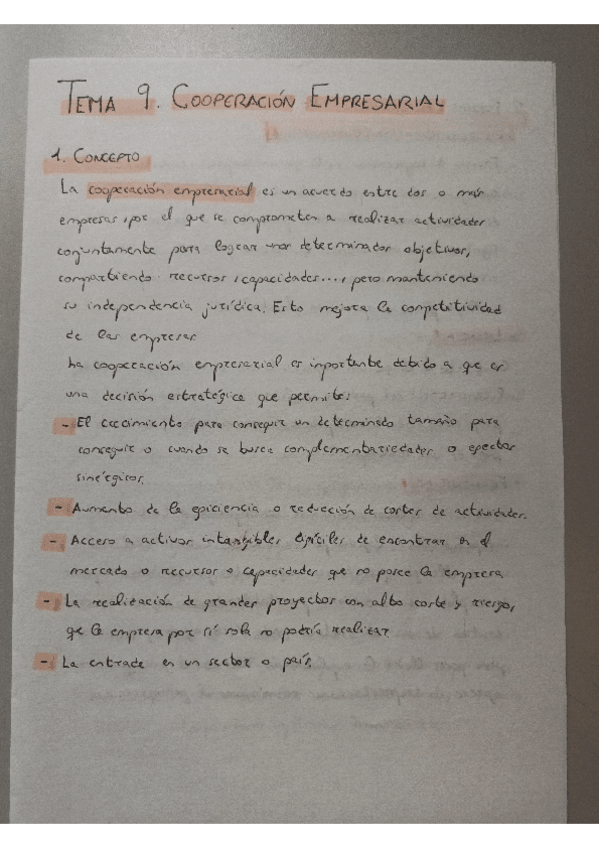 TEMA 9. COOPERACIÓN EMPRESARIAL
1. CONCEPTO
La cooperación empresarial es un acuerdo entre dos o más
empresas, por el que se comprometen a realizar actividades
conjuntamente para lograr unos determinados objetivos,
compartiendo recursos, capacidades..., pero manteniendo
su independencia jurídica. Esto mejora la competitividad
de las empresas
La cooperación empresarial es importante debido a que es
una decisión estratégica que permite:
- El crecimiento para conseguir un determinado tamaño para
conseguir o cuando se busca complementariedades o efectos
sinérgicos.
- Aumento de la eficiencia o reducción de costes de actividades.
- Acceso a activos intangibles difíciles de encontrar en el
mercado o recursos o capacidades que no posee la empresa
- La realización de grandes proyectos con alto coste y riesgo,
que la empresa por sí sola no podría realizar
- La entrada en un sector o país.